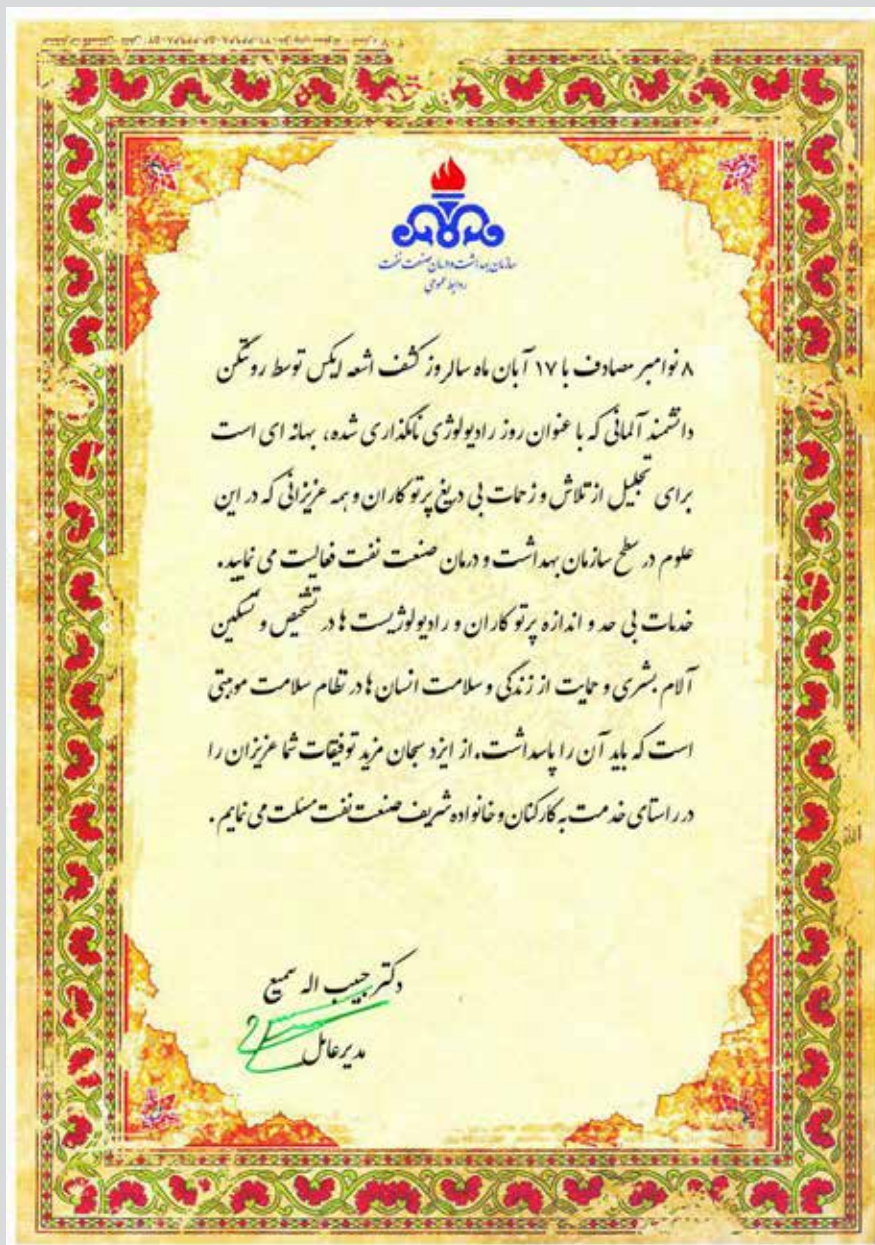 سازمان بهداشت و درمان صنعت نفت
روابط عمومی
۸ نوامبر مصادف با ۱۷ آبان ماه سالروز کشف اشعه ایکس توسط رونتگن
دانشمند آلمانی که با عنوان روز رادیولوژی نامگذاری شده، بهانه ای است
برای تجلیل از تلاش و زحمات بی دریغ پرتو کاران و همه عزیزانی که در این
علوم در سطح سازمان بهداشت و درمان صنعت نفت فعالیت می نمایید.
خدمات بی حد و اندازه پرتو کاران و رادیولوژیست ها در تشخیص و تسکین
آلام بشری و حمایت از زندگی و سلامت انسان ها در نظام سلامت موهبتی
است که باید آن را پاسداشت. از ایزد سبحان مزید توفیقات شما عزیزان را
در راستای خدمت به کارکنان و خانواده شریف صنعت نفت مسئلت می نمایم.
دکتر حبیب اله سمیع
مدیرعامل